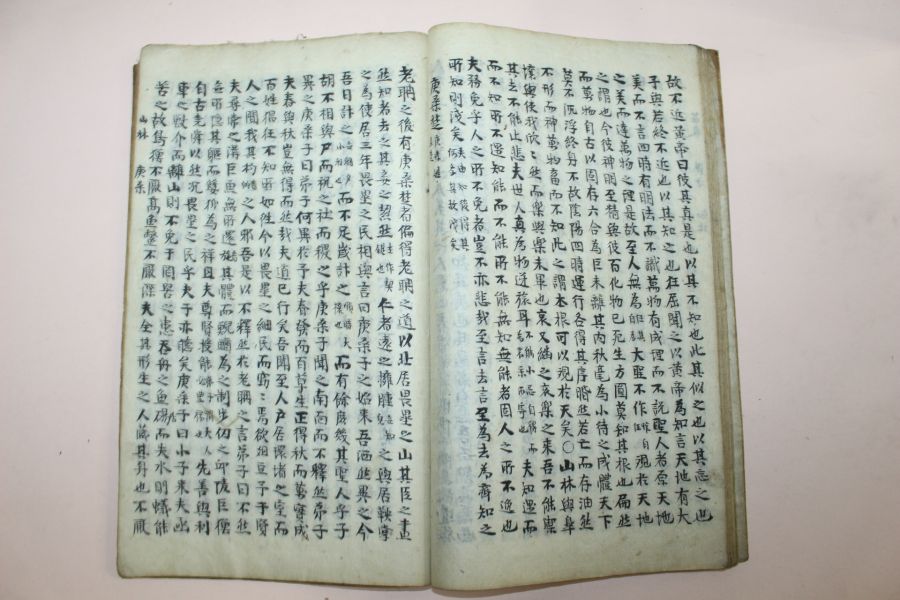 故不近黃帝曰彼其真是也以其不知也此其似之也以其忘之也
子與若終不近也以其知之也狂屈聞之以黃帝為知言天地有大
美而不言四時有明法而不議萬物有成理而不說聖人者原天地
之美而達萬物之理是故至人無為大聖不作觀於天地
之謂也今彼神明至精與彼百化物已死生方圓莫知其根也扁然
而萬物自古以固存六合為巨未離其內秋毫為小待之成體天下
莫不沉浮終身不故陰陽四時運行各得其序惛然若亡而存油然
不形而神萬物畜而不知此之謂本根可以觀於天矣○山林與皐
壤與使我欣〻然而樂與樂未畢也哀又繼之哀樂之來吾不能禦
其去不能止悲夫世人真為物逆旅耳夫知遇而
而不知所不遇知能能而不能所不能無知無能者固人之所不逸也
夫務免乎人之所不免者豈不亦悲哉至言去言至為去為齊知之
所知則淺矣
庚桑楚
老聃之後有庚桑楚者偏得老聃之道以北居畏壘之山其臣之畫
然知者去之其妾之挈然仁者遠之擁腫之與居鞅掌
之為使居三年畏壘之民相與言曰庚桑子之始來吾洒然異之今
吾日計之而不足歲計之而有餘庶幾其聖人乎子
胡不相與尸而祝之社而稷之乎庚桑子聞之南面而不釋然弟子
異之庚桑子曰弟子何異於予夫春發而百草生正得秋而萬寶成
夫春與秋豈無得而然哉夫道已行矣吾聞至人尸居環堵之室而
百姓猖狂不知所如往今以畏壘之細民而竊〻焉欲俎豆予于賢
人之間我其杓之人邪吾是以不釋然於老聃之言弟子曰不然
夫尋常之溝巨魚無所還旋其體而鯢鰌為之制步仞之邱陵巨獸
無所隱其軀而孽狐為之祥且夫尊賢授能先善與利
自古堯舜以然況畏壘之民乎夫子亦聽矣庚桑子曰小子來夫函
車之獸介而離山則不免于罔罟之患吞舟之魚碭而失水則蟻能
苦之故鳥獸不厭高魚鱉不厭深夫全其形生之人藏其身也不厭
山林 庚桑